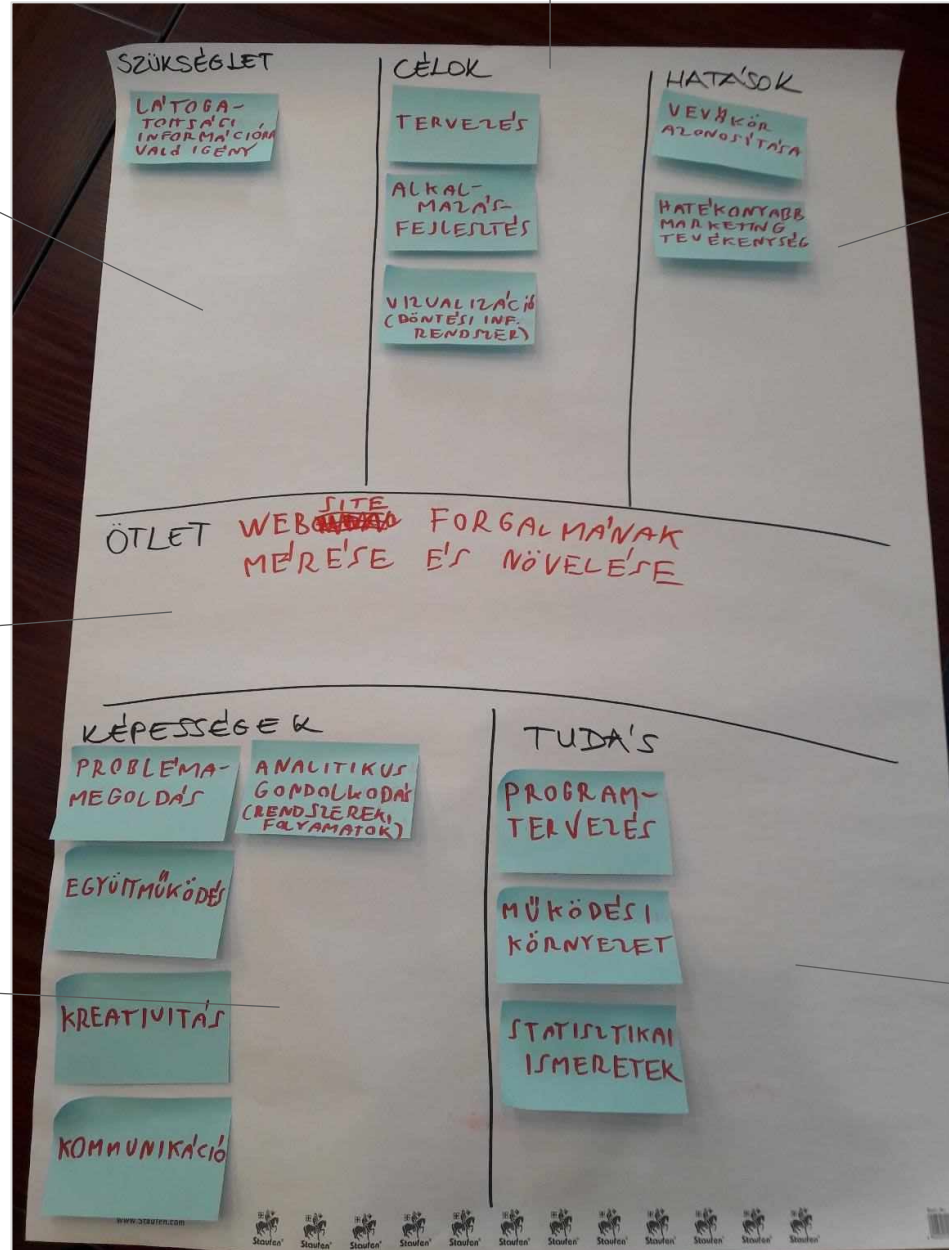 SZÜKSÉGLET
LÁTOGA-
TOTTSÁGI
INFORMÁCIÓRA
VALÓ IGÉNY
CÉLOK
TERVEZÉS
ALKAL-
MAZÁS-
FEJLESZTÉS
VIZUALIZÁCIÓ
(DÖNTÉSI INF.
RENDSZER)
HATÁSOK
VEVŐKÖR
AZONOSÍTÁSA
HATÉKONYABB
MARKETING
TEVÉKENYSÉG
ÖTLET
WEBSITE FORGALMÁNAK
MÉRÉSE ÉS NÖVELÉSE
KÉPESSÉGEK
PROBLÉMA-
MEGOLDÁS
ANALITIKUS
GONDOLKODÁS
(RENDSZEREK,
FOLYAMATOK)
EGYÜTTMŰKÖDÉS
KREATIVITÁS
KOMMUNIKÁCIÓ
TUDÁS
PROGRAM-
TERVEZÉS
MŰKÖDÉSI
KÖRNYEZET
STATISZTIKAI
ISMERETEK
www.Staufen.com
Staufen Staufen Staufen Staufen Staufen Staufen Staufen Staufen Staufen Staufen Staufen Staufen